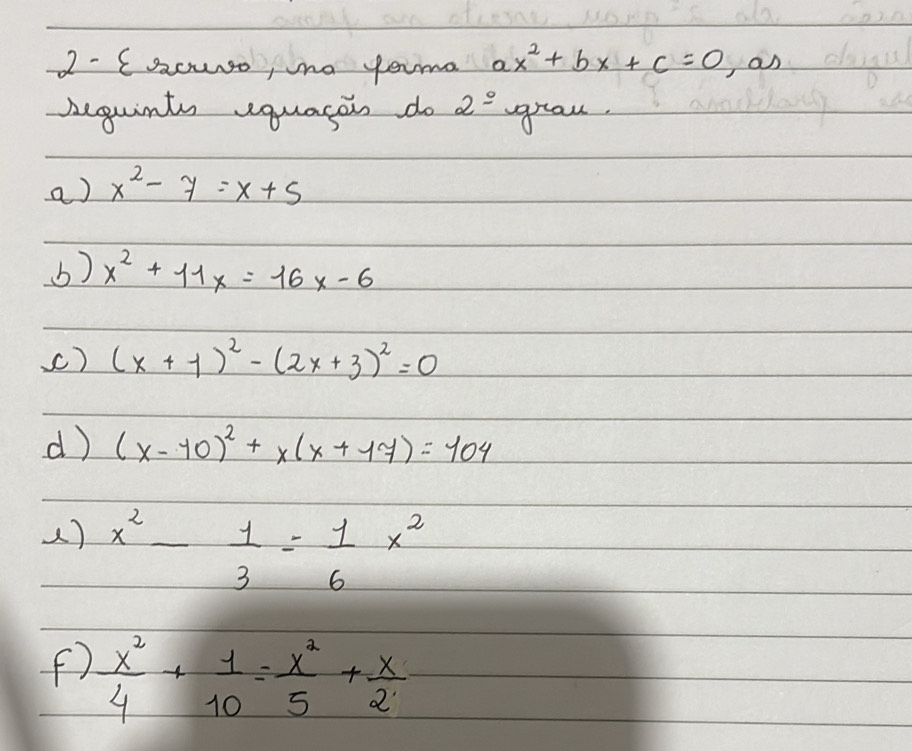 2- Escreva, na forma ax² + bx + c = 0, as
seguintes equações do 2º grau.
a) x² - 7 = x + 5
b) x² + 11x = 16x - 6
c) (x + 1)² - (2x + 3)² = 0
d) (x - 10)² + x(x + 17) = 104
e) x² - 1/3 = 1/6 x²
f) x²/4 + 1/10 = x²/5 + x/2